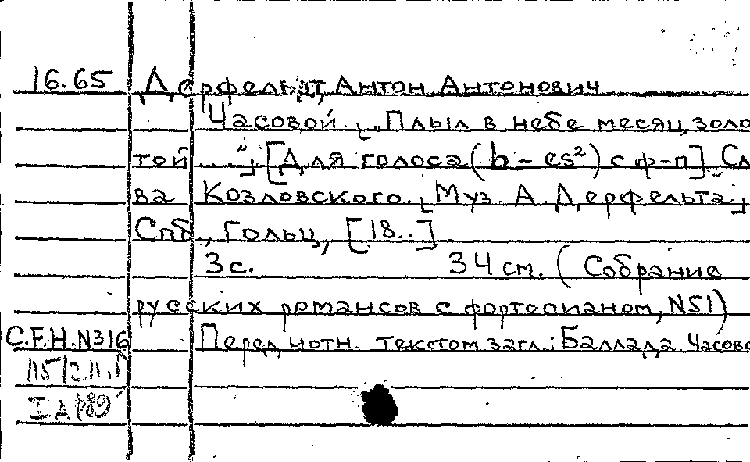 16.65 Дерфельдт, Антон Антонович
Часовой. „Плыл в небе месяц золо
той ...“ [Для голоса (b – es²) с ф-п] Сл
ва Козловского. Муз А. Дерфельта.
Спб., Гольц, [18..]
3 с. 34 см. (Собрание
русских романсов с фортепианом, N51)
C.F.H.N316 Перед нотн. текстом загл.: Баллада Часово